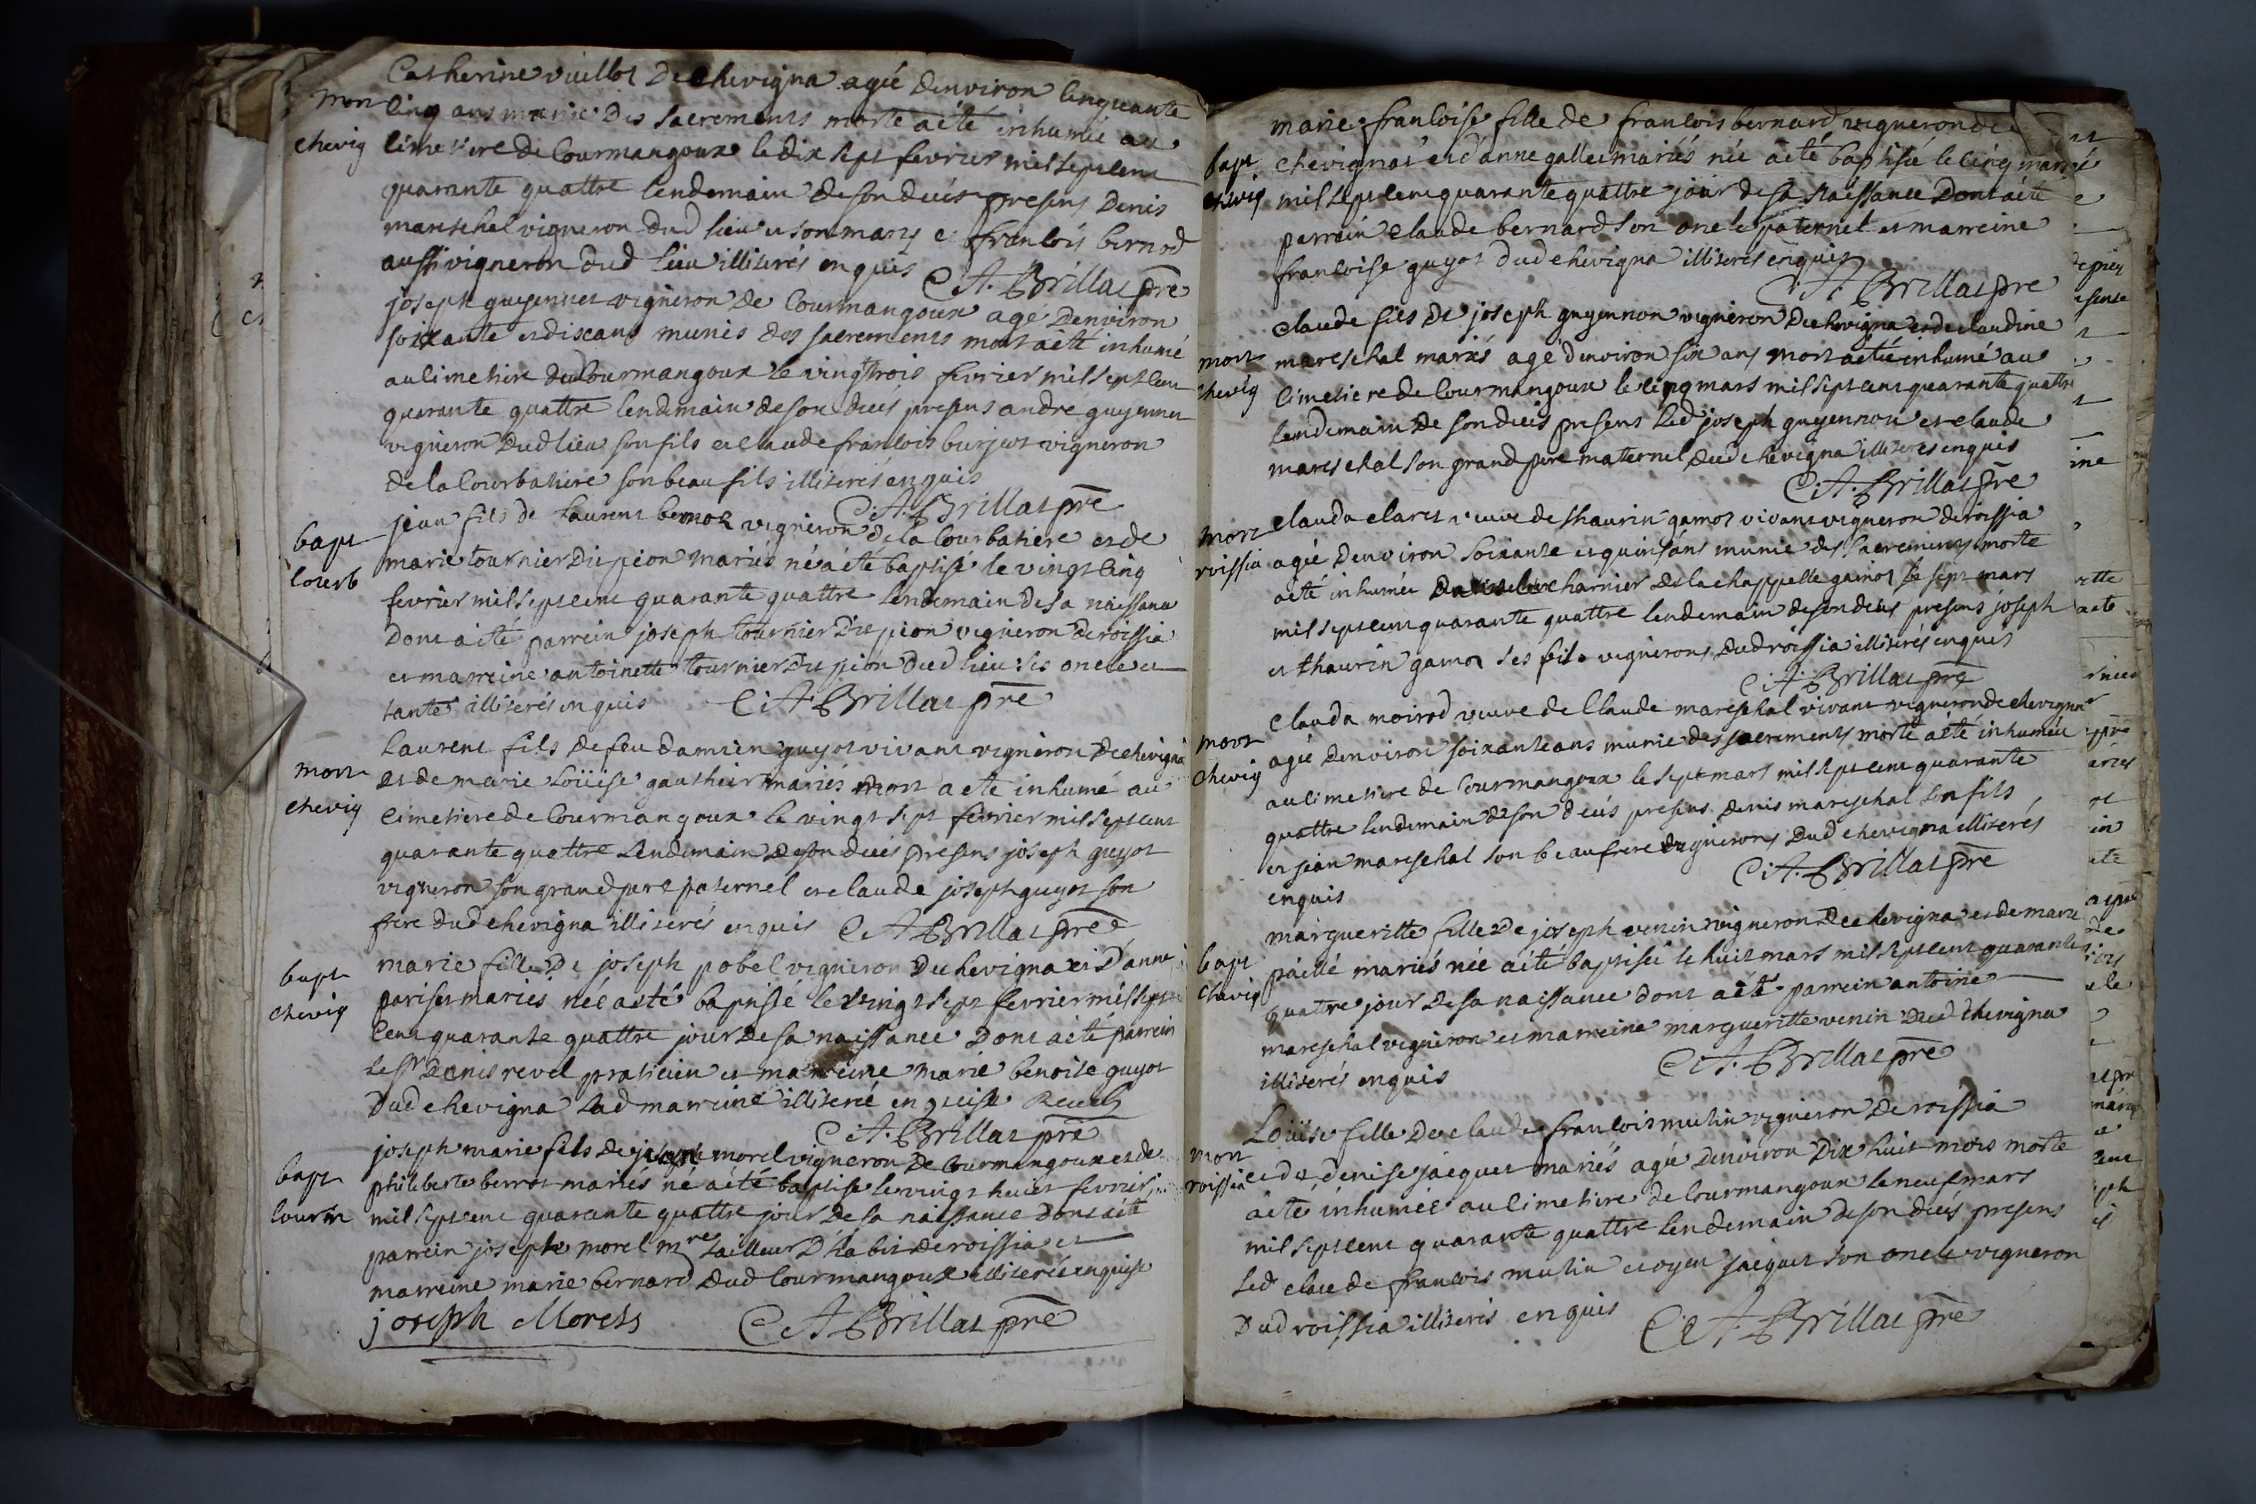 Catherine vuillot De chevigna agée Denviron cinquante
mort cinq ans munie Des sacrements morte a été inhumée au
chevig cimetiere de Courmangoux le dix sept fevrier mil sept cent
quarante quattre lendemain de son decés presens Denis
mareschal vigneron dud lieu son marÿ et francois bernard
aussi vigneron dud lieu illiterés enquis C. A. Brillat pre
joseph guyennet vigneron de Courmangoux agé Denviron
soixante et dix ans munis des sacrements mort a été inhumé
au cimetiere de Courmangoux le vingt trois fevrier mil sept cent
quarante quattre lendemain de son decés presens andré guyennet
vigneron dud lieu son fils et claude francois burjet vigneron
de la Courbatiere son beau fils illiterés enquis
C. A. Brillat pre
jean fils de laurent vigneron de la Courbatiere et de
bapt
courb
marie tournier Dupion mariés né a été baptisé le vingt cinq
fevrier mil sept cent quarante quattre lendemain de sa naissance
dont a été parrein joseph tournier Dupion vigneron de roissia
et marreine antoinette tournier Dupion dud lieu ses oncle et
tante illiterés enquis C. A. Brillat pre
Laurent fils de feu damien guyot vivant vigneron De chevigna
mort
chevig
et de marie Loüise gauthier mariés mort a été inhumé au
cimetiere de Courmangoux le vingt sept fevrier mil sept cent
quarante quattre Lendemain de son decés presens joseph guyot
vigneron son grand pere paternel et claude joseph guyot son
frere dud chevigna illiterés enquis C. A. Brillat pre
marie fille De joseph pobel vigneron De chevigna et D'anne
bapt
chevig
pariset mariés née a été baptisée le vingt sept fevrier mil sept
cent quarante quattre jour de sa naissance Dont a été parrein
le Sr Denis revel praticien et marreine marie benoite guyot
Dud chevigna Lad marreine illiterée enquise Revel
C. A. Brillat pre
joseph marie fils de joseph morel vigneron de Courmangoux et de
bapt
courm
philiberte berrot mariés né a été baptisé le vingt huit fevrier
mil sept cent quarante quattre jour de sa naissance dont a été
parrein joseph morel mre tailleur D'habit de roissia et
marreine marie bernard dud Courmangoux illiterée enquise
joseph Morel C. A. Brillat pre
marie francoise fille de francois bernard vigneron de
bapt
chevig
chevigna et d'anne gallet mariés née a été baptisée le cinq mars
mil sept cent quarante quattre jour de sa Naissance Dont a été
parrein Claude bernard son oncle paternel et marreine
francoise guyot dud chevigna illiterés enquis
C. A. Brillat pre
Claude fils De joseph guyennon vigneron De chevigna et de claudine
mort
chevig
mareschal mariés agé d'environ six ans mort a été inhumé au
cimetiere de Courmangoux le cinq mars mil sept cent quarante quattre
lendemain de son decés presens led joseph guyennon et claude
mareschal son grand pere maternel dud chevigna illiterés enquis
C. A. Brillat pre
clauda claret veuve de thaurin gamot vivant vigneron de roissia
mort
roissia
agée Denviron soixante et quins ans munie des sacrements morte
a été inhumée Dans le charnier de la chappelle gamot le sept mars
mil sept cent quarante quattre lendemain de son decés presens joseph
et thaurin gamot ses fils vignerons dud roissia illiterés enquis
C. A. Brillat pre
Clauda moirod veuve de Claude mareschal vivant vigneron de chevigna
mort
chevig
agée Denviron soixante ans munie des sacrements morte a été inhumée
au cimetiere de Courmangoux le sept mars mil sept cent quarante
quattre lendemain de son decés presens denis mareschal son fils
et jean mareschal son beau frere vignerons dud chevigna illiterés
enquis C. A. Brillat pre
margueritte fille De joseph venin vigneron De chevigna et de marie
bapt
chevig
paillé mariés née a été baptisée le huit mars mil sept cent quarante
quattre jour de sa naissance dont a été parrein antoine
mareschal vigneron et marreine margueritte venin dud chevigna
illiterés enquis C. A. Brillat pre
Loüise fille De claude francois mutin vigneron de roissia
mort
roissia
et de denise jacquet mariés agée denviron Dix huit mois morte
a été inhumée au cimetiere de Courmangoux le neuf mars
mil sept cent quarante quattre lendemain de son decés presens
led claude francois mutin et oyen jacquet son oncle vigneron
Dud roissia illiterés enquis C. A. Brillat pre